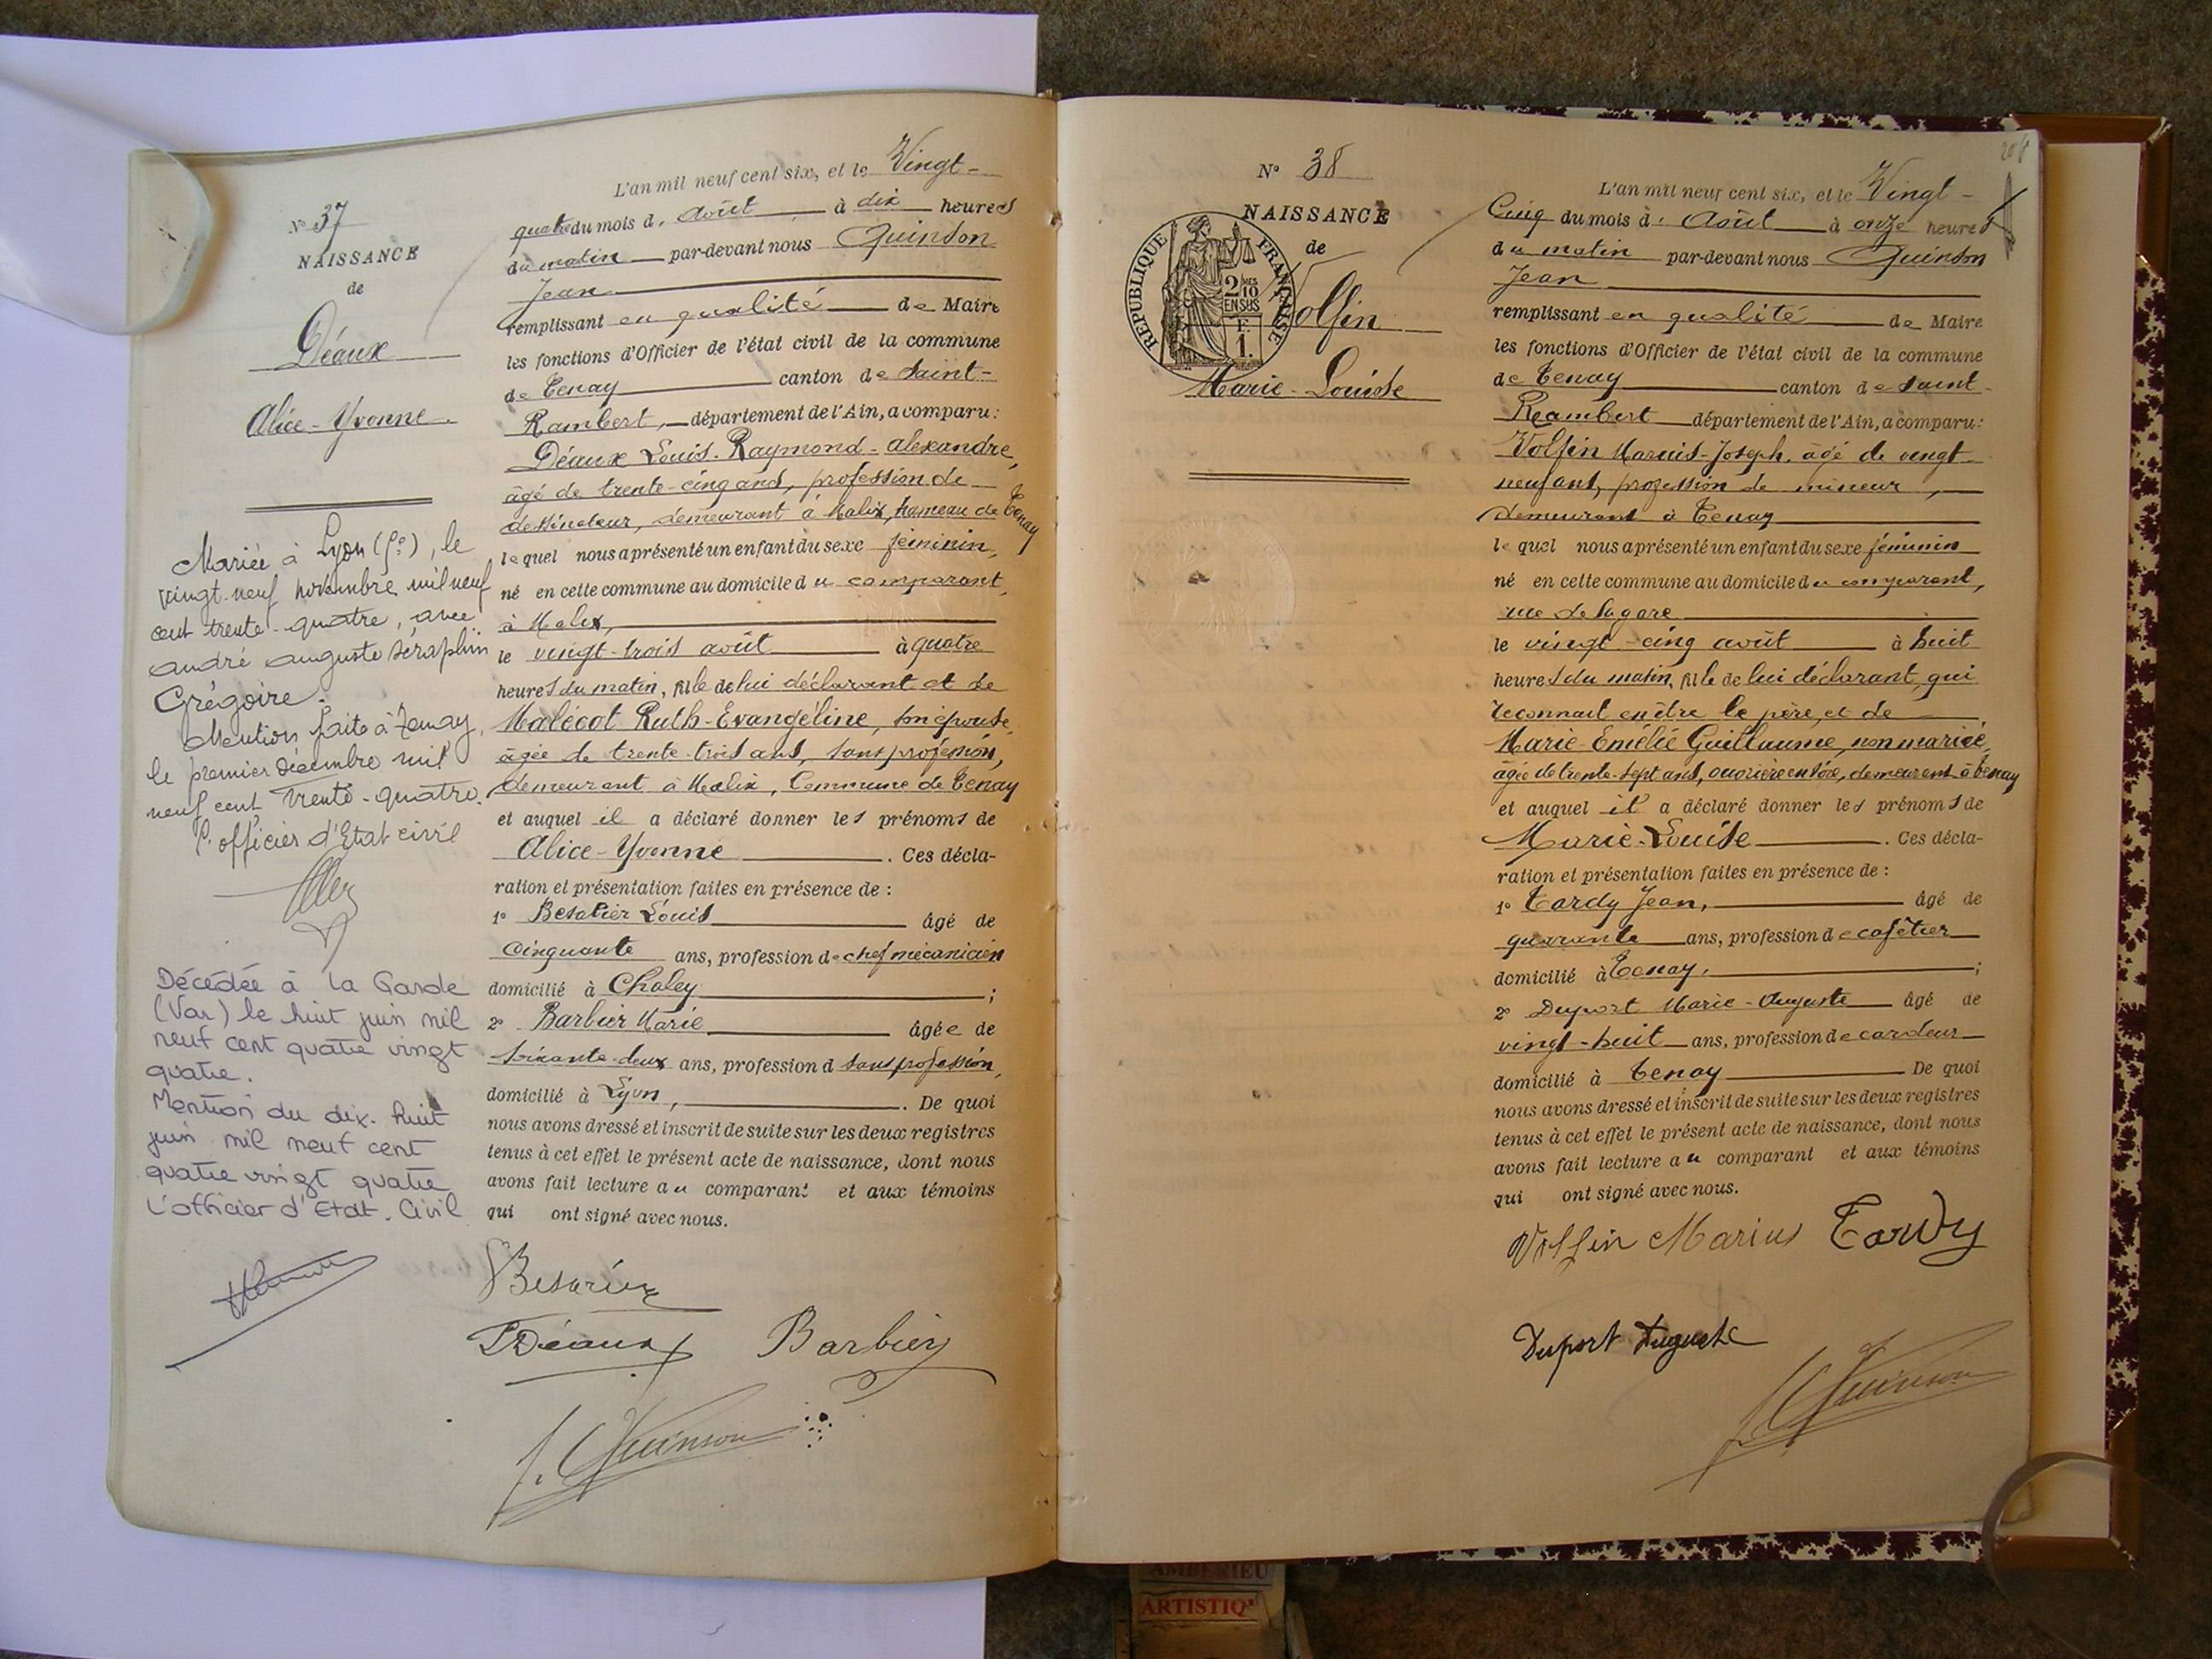 N° 37
NAISSANCE
de
Déaux
Alice-Yvonne.
Mariée à Lyon (), le
vingt-neuf novembre mil neuf
cent trente-quatre, avec
andré auguste séraphin
Grégoire.
Mention faite à Tenay,
le premier décembre mil
neuf cent trente-quatre.
l'officier d'Etat civil
Décédée à La Garde
(Var) le huit juin mil
neuf cent quatre vingt
quatre.
Mention du dix-huit
juin mil neuf cent
quatre vingt quatre
L'officier d'Etat-Civil
L'an mil neuf cent six, et le Vingt-
quatre du mois d, août à dix heures
du matin par-devant nous Quinson
Jean
remplissant en qualité de Maire
les fonctions d'Officier de l'état civil de la commune
de Tenay canton de Saint-
Rambert, département de l'Ain, a comparu :
Déaux Louis-Raymond-Alexandre,
âgé de trente-cinq ans, profession de
dessinateur, demeurant à Malix, hameau de Tenay
lequel nous a présenté un enfant du sexe féminin,
né en cette commune au domicile du comparant,
à Malix,
le vingt-trois août à quatre
heures du matin, fille de lui déclarant et de
Malécot Ruth-Evangéline, son épouse,
âgée de trente-trois ans, sans profession,
demeurant à Malix, Commune de Tenay
et auquel il a déclaré donner les prénoms de
Alice-Yvonne . Ces décla-
ration et présentation faites en présence de :
1° Louis âgé de
Cinquante ans, profession de chef mécanicien
domicilié à Chaley ;
2° Barbier Marie âgée de
soixante-deux ans, profession d sans profession,
domicilié à Lyon, . De quoi
nous avons dressé et inscrit de suite sur les deux registres
tenus à cet effet le présent acte de naissance, dont nous
avons fait lecture au comparant et aux témoins
qui ont signé avec nous.
Déaux Barbier
J. Quinson
N° 38
NAISSANCE
de
RÉPUBLIQUE FRANÇAISE
2 MES
10
EN SUS
F.
1.
Volfin
Marie-Louise
208
L'an mil neuf cent six, et le Vingt-
Cinq du mois d: Août à onze heures
du matin par-devant nous Quinson
Jean
remplissant en qualité de Maire
les fonctions d'Officier de l'état civil de la commune
de Tenay canton de Saint-
Rambert département de l'Ain, a comparu :
Volfin Marius-Joseph, âgé de vingt-
neuf ans, profession de mineur,
demeurant à Tenay
lequel nous a présenté un enfant du sexe féminin
né en cette commune au domicile du comparant,
rue de la gare
le vingt-cinq août à huit
heures du matin, fille de lui déclarant, qui
reconnait en être le père, et de
Marie-Emélie Guillaume, non mariée,
âgée de trente-sept ans, ouvrière en soie, demeurant à Tenay
et auquel il a déclaré donner les prénoms de
Marie-Louise . Ces décla-
ration et présentation faites en présence de :
1° Tardy Jean, âgé de
quarante ans, profession de cafetier
domicilié à Tenay. ;
2° Duport Marie-Auguste âgé de
vingt-huit ans, profession de cardeur
domicilié à Tenay De quoi
nous avons dressé et inscrit de suite sur les deux registres
tenus à cet effet le présent acte de naissance, dont nous
avons fait lecture au comparant et aux témoins
qui ont signé avec nous.
Volfin Marius Tardy
Duport Auguste
J. Quinson
AMBERIEU
ARTISTIQ